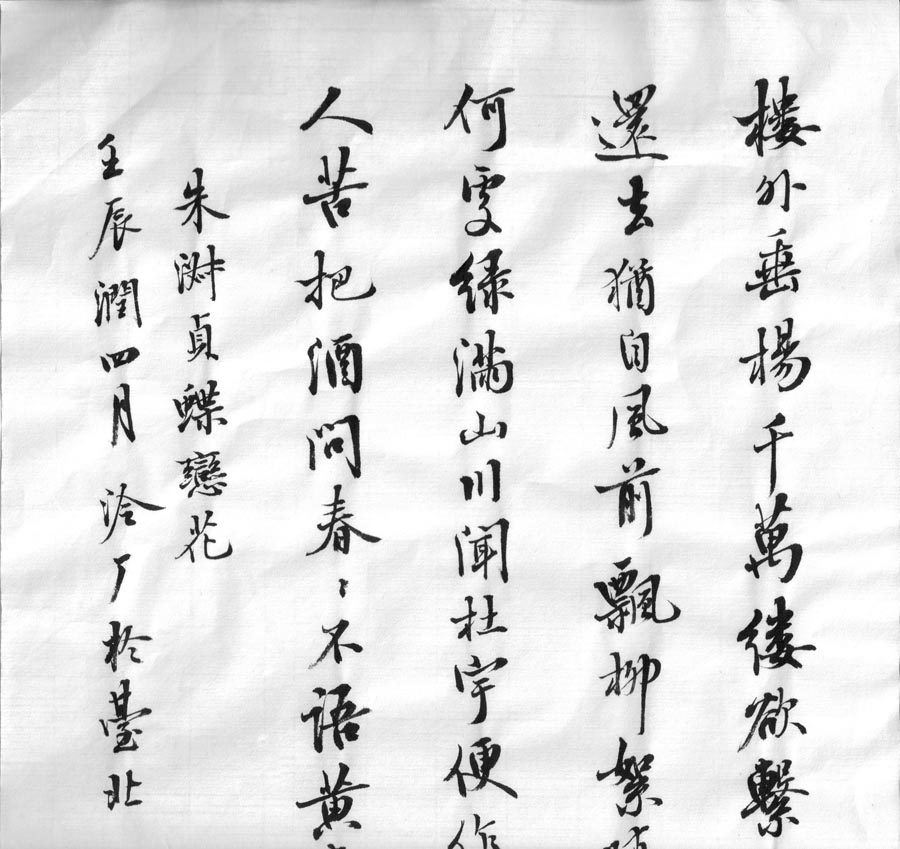 樓外垂楊千萬縷欲繫
還去猶自風前飄柳絮
何處綠滿山川聞杜宇便作
人苦把酒問春〻不語黃
朱淑貞蝶戀花
壬辰潤四月泠厂於臺北